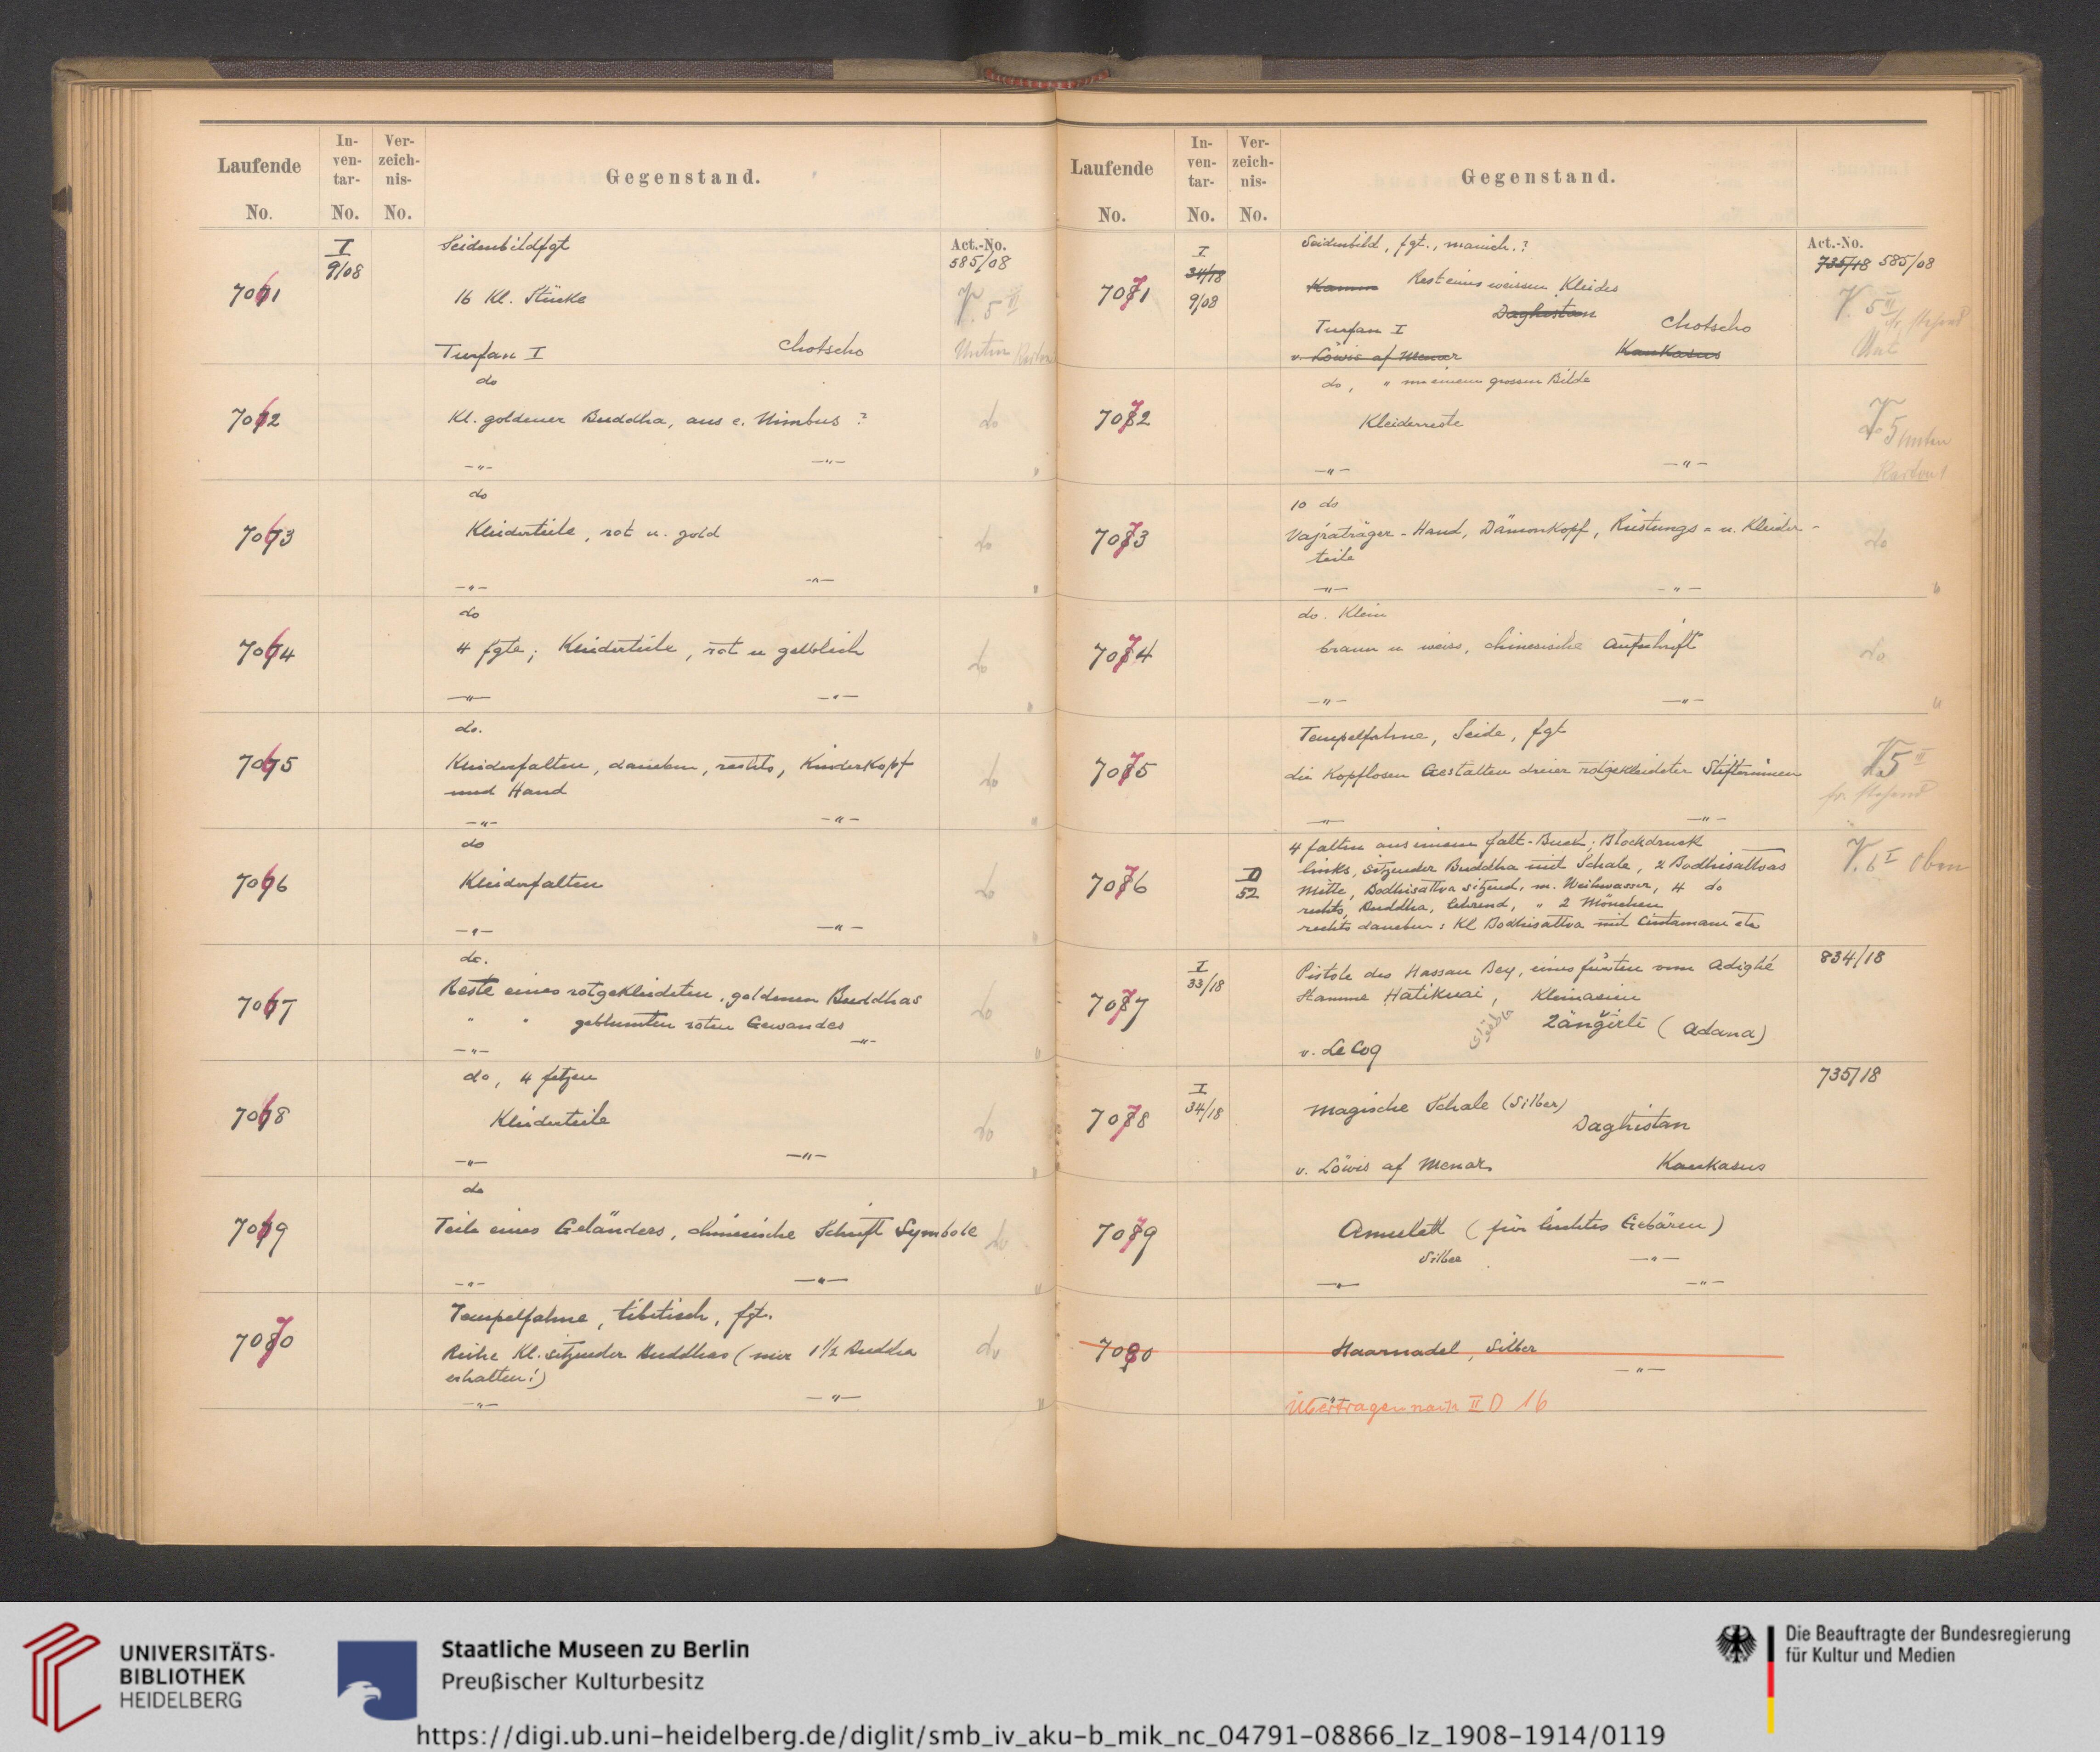 Laufende
No.
In-
ven-
tar-
No.
Ver-
zeich-
nis-
No.
Gegenstand.
I
9/08
7061
Seidenbildfgt
16 Kl. Stücke
Turfan I Chotscho
Act.-No.
585/08
V. 5 II
Unten
7062
do
Kl. goldener Buddha, aus e. Nimbus ?
-"- -"-
do
7063
do
Kleiderteile, rot u. gold
-"- -"-
do
7064
do
4 fgte; Kleiderteile, rot u gelblich
-"- -"-
do
7065
do.
Kleiderfalten, daneben, rechts, Kinderkopf
und Hand
-"- -"-
do
7066
do
Kleiderfalten
-"- -"-
do
7067
do.
Reste eines rotgekleideten, goldenen Buddhas
" " geblumten roten Gewandes
-"- -"-
do
7068
do, 4 fetzen
Kleiderteile
-"- -"-
do
7069
do
Teile eines Geländers, chinesische Schrift Symbole
-"- -"-
do
7070
Tempelfahne, tibetisch, fgt.
Reihe Kl. sitzender Buddhas (nur 1½ Buddha
erhalten!)
-"- -"-
do
Laufende
No.
In-
ven-
tar-
No.
Ver-
zeich-
nis-
No.
Gegenstand.
I
34/18
9/08
7071
Seidenbild, fgt., manich.?
Rest eines weissen Kleides
Daghestan
Turfan I Chotscho
v. Löwis af Menar Kaukasus
Act.-No.
735/18 585/08
V. 5 III
7072
do, " von einem grossen Bilde
Kleiderreste
-"- -"-
V 5 Unten
Karton 1
7073
10 do
Vajraträger-Hand, Dämonkopf, Rüstungs- u. Kleider-
teile
-"- -"-
do
7074
do. Klein
braun u weiss, chinesische Aufschrift
-"- -"-
do
7075
Tempelfahne, Seide, fgt
die Kopflosen Gestalten dreier rotgekleideter Stifterinnen
-"- -"-
V5 II
fr. stehend
7076
D
52
4 falten aus einem falt-Buch; Blockdruck
links, sitzender Buddha mit Schale, 2 Bodhisattvas
Mitte, Bodhisattva sitzend, m. Weihwasser, 4 do
rechts, Buddha, lehrend, " 2 Mönchen
rechts daneben: Kl Bodhisattva mit Cintamani etc
V. 6 I Oben
I
33/18
7077
Pistole des Hassan Bey, eines fürsten vom Adighé
Stamme Hatikuai, Kleinasien
Zängirli (Adana)
v. Le Coq
834/18
I
34/18
7078
Magische Schale (Silber)
Daghistan
v. Löwis af Menar Kaukasus
735/18
7079
Amulett (für leichtes Gebären)
Silber -"-
-"- -"-
7080
Haarnadel, Silber
-"-
Übertragen nach II D 16
UNIVERSITÄTS-
BIBLIOTHEK
HEIDELBERG
Staatliche Museen zu Berlin
Preußischer Kulturbesitz
Die Beauftragte der Bundesregierung
für Kultur und Medien
https://digi.ub.uni-heidelberg.de/diglit/smb_iv_aku-b_mik_nc_04791-08866_lz_1908-1914/0119